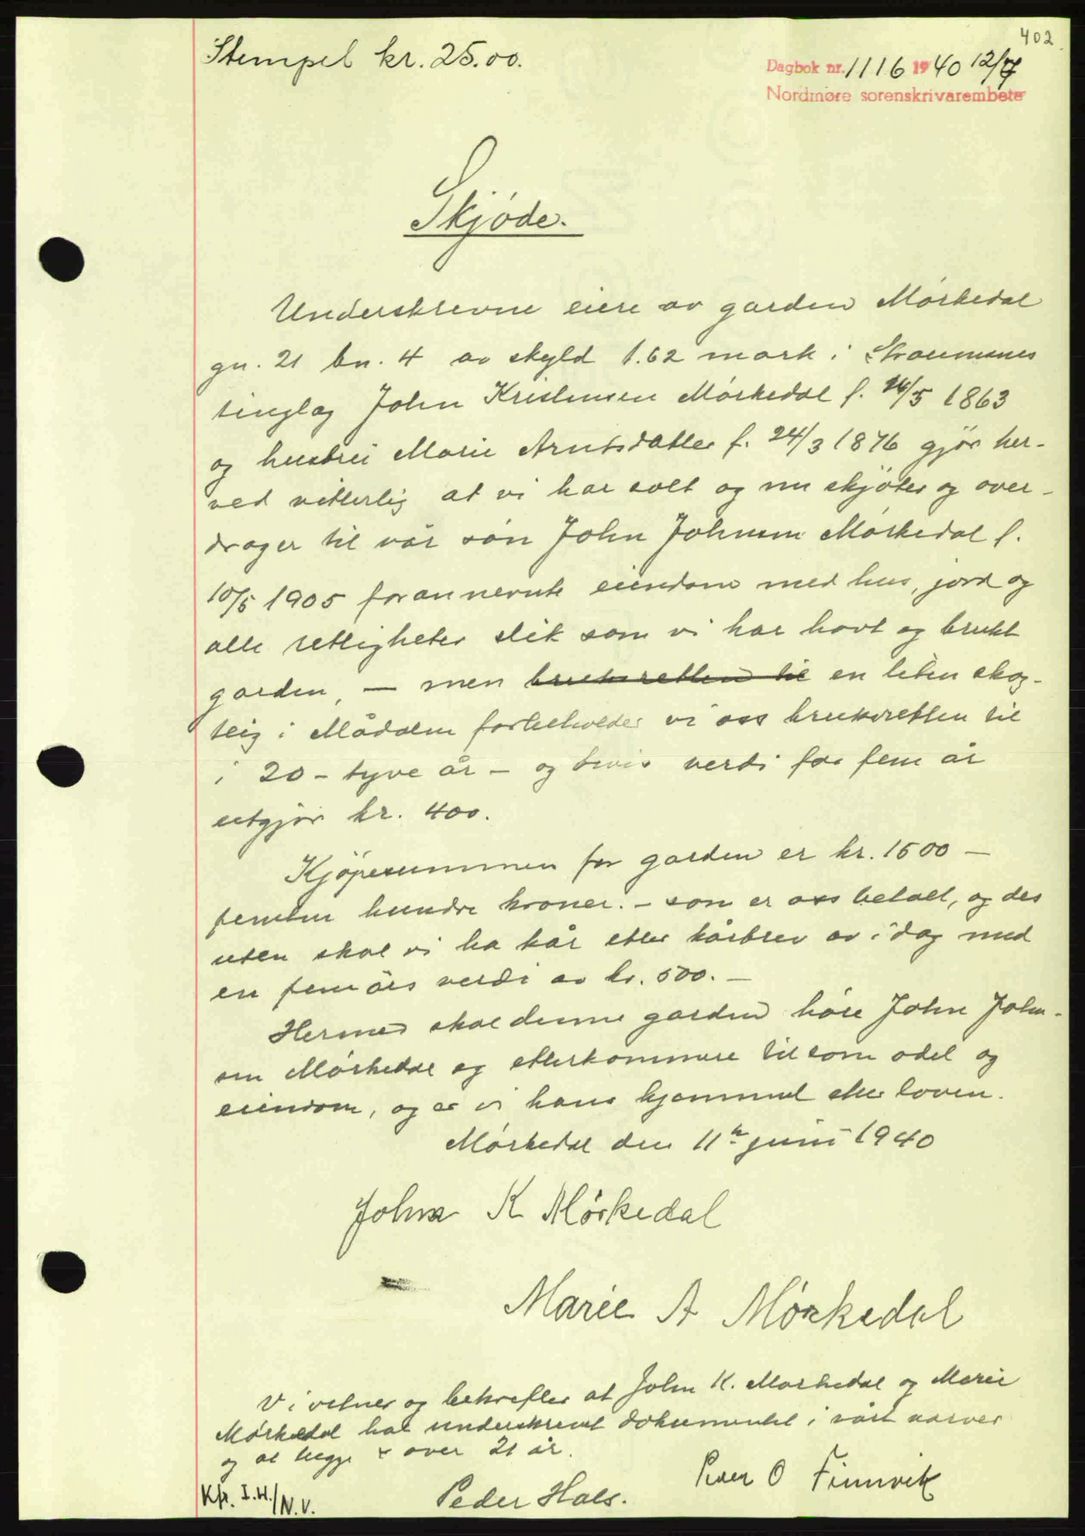 402
Stempel kr. 25.00.
Dagbok nr. 1116 1940 12/7
Nordmøre sorenskrivarembete
Skjøde.
Underskrevne eiere av garden Mørkedal
gn. 21 bn. 4 av skyld 1.62 mark i Straumsnes
tinglag John Kristensen Mørkedal f. /5 1863
og hustru Marie Arntsdatter f. 24/3 1876 gjør her-
ved vitterlig at vi har solt og nu skjøter og over-
drager til vår søn John Johnsen Mørkedal f.
10/5 1905 forannevnte eiendom med hus, jord og
alle rettigheter slik som vi har havt og brukt
garden, — men bruksretten til en liten skog-
teig i Mådalen forbeholder vi oss bruksretten til
i 20 - tyve år - og dens verdi for fem år
utgjør kr. 400.
Kjøpesummen for garden er kr. 1500 —
femten hundre kroner. - som er oss betalt, og des
uten skal vi ha kår etter kårbrev av idag med
en femårs verdi av kr. 500. —
Hermed skal denne garden høre John John-
sen Mørkedal og etterkommere til som odel og
eiendom, og er vi hans hjemmel etter loven.
Mørkedal den 11te juni 1940
John K Mørkedal
Marie A Mørkedal
Vi vitner og bekrefter at John K. Mørkedal og Marie
Mørkedal har underskrevet dokumentet i vårt nærver
og at begge er over 21 år.
Peder O Finnvik
Peder Hals.
Kp. I.H./N.V.